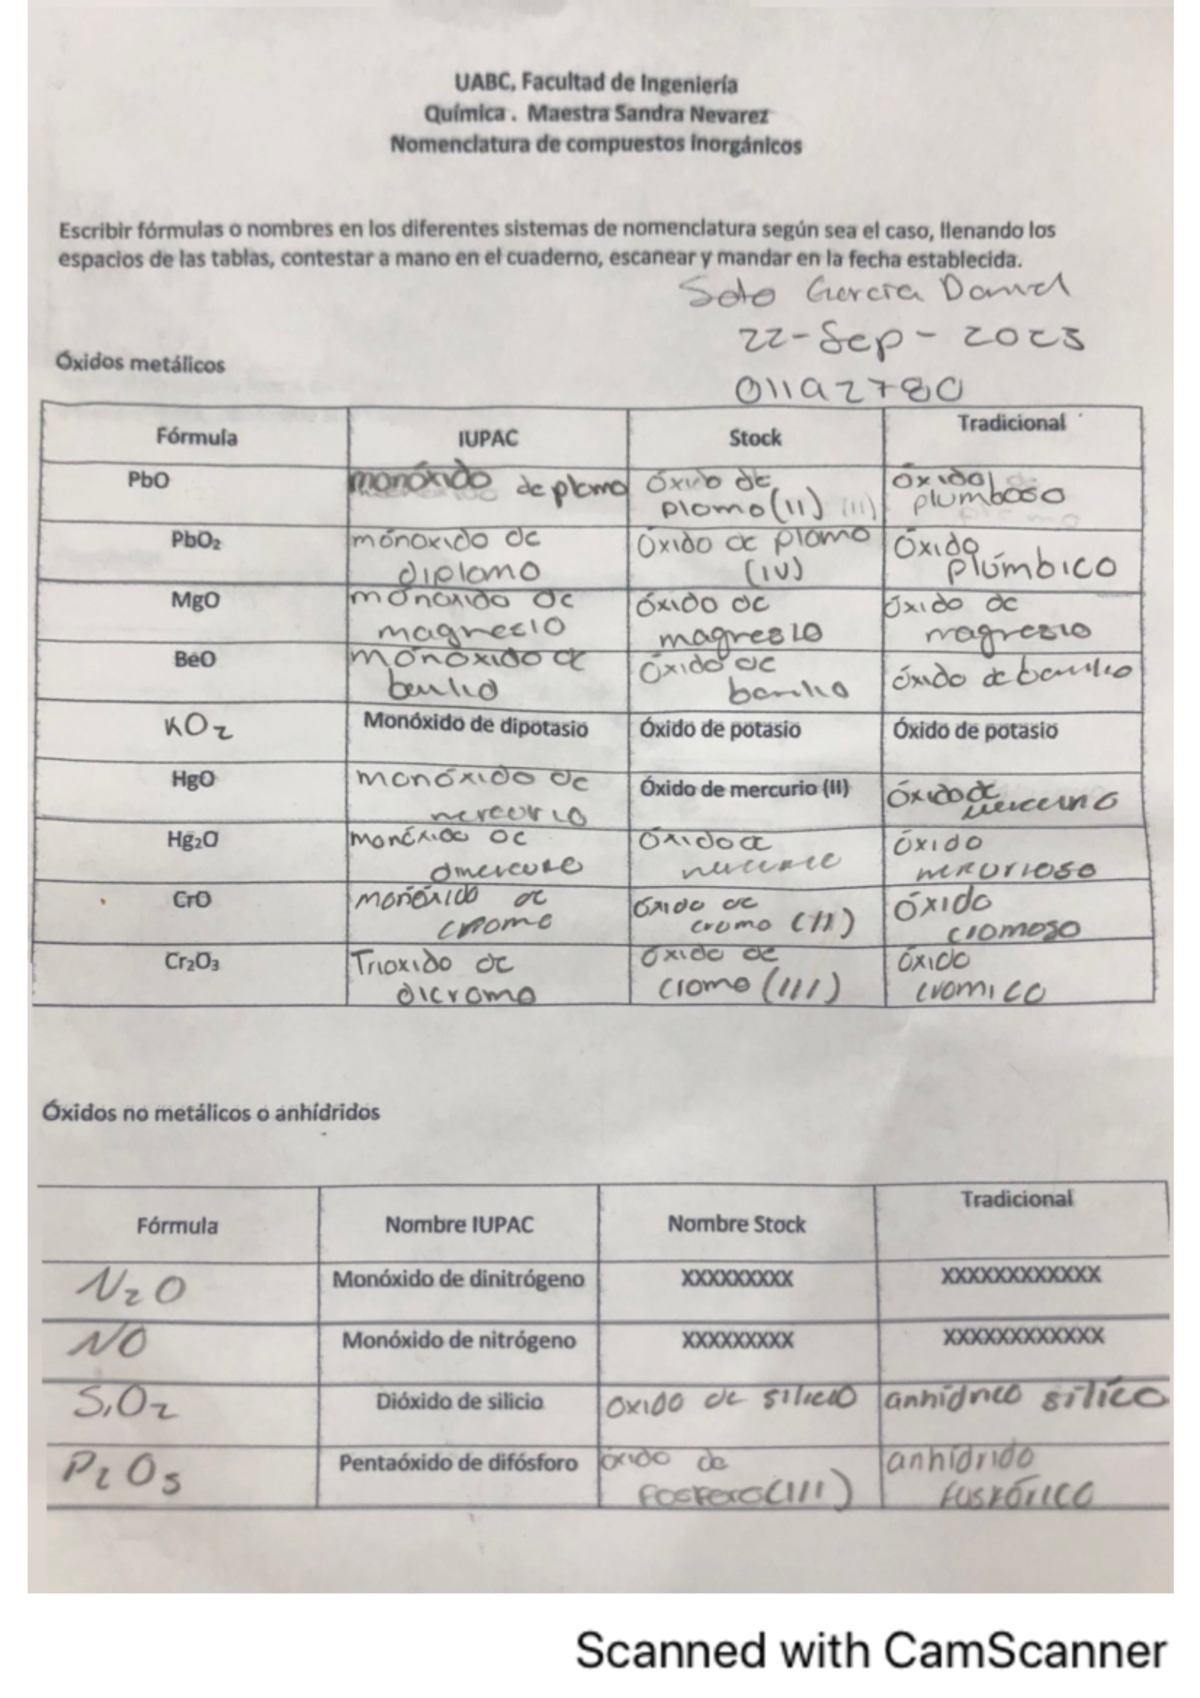 UABC, Facultad de Ingeniería
Química . Maestra Sandra Nevarez
Nomenclatura de compuestos inorgánicos
Escribir fórmulas o nombres en los diferentes sistemas de nomenclatura según sea el caso, llenando los
espacios de las tablas, contestar a mano en el cuaderno, escanear y mandar en la fecha establecida.
Soto Garcia Daniel
22-Sep-2023
Óxidos metálicos
Fórmula IUPAC Stock Tradicional
PbO monóxido de plomo óxido de plomo (II) (II) óxido plumboso
PbO₂ monoxido de diplomo óxido de plomo (IV) óxido plúmbico
MgO monoxido de magnesio óxido de magnesio óxido de magnesio
BeO monóxido de óxido de óxido de
KO2 Monóxido de dipotasio Óxido de potasio Óxido de potasio
HgO monóxido de mercurio Óxido de mercurio (II) óxido de
Hg₂O monóxido de óxido de óxido
CrO monóxido de cromo óxido de cromo (II) óxido cromoso
Cr₂O₃ Trioxido de dicromo óxido de cromo (III) óxido cromico
Óxidos no metálicos o anhídridos
Fórmula Nombre IUPAC Nombre Stock Tradicional
N2O Monóxido de dinitrógeno XXXXXXXXX XXXXXXXXXXXX
NO Monóxido de nitrógeno XXXXXXXXX XXXXXXXXXXXX
SiO2 Dióxido de silicio oxido de silicio silíco
P2O5 Pentaóxido de difósforo óxido de (III) anhídrido
Scanned with CamScanner